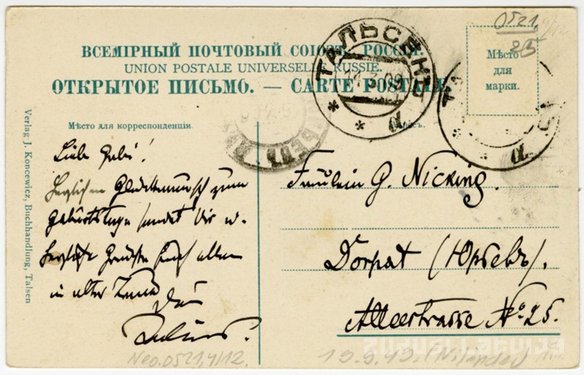 0521
ВСЕМІРНЫЙ ПОЧТОВЫЙ СОЮЗЪ. РОССІЯ.
UNION POSTALE UNIVERSELLE. RUSSIE.
ОТКРЫТОЕ ПИСЬМО. — CARTE POSTALE.
ТАЛЬСЕНЪ
a
Мѣсто
для
марки.
a
Мѣсто для корреспонденціи.
Verlag J. Koncewicz, Buchhandlung, Talsen
Liebe
Herzlichen Glückwunsch zum
Geburtstage sendet Dir u.
herzliche Grüße Euch allen
in alter
Dein
Julius.
Fräulein G. Nicking.
Dorpat (Юрьевъ).
Alleestrasse No. 25.
Neo.0521,4/12.